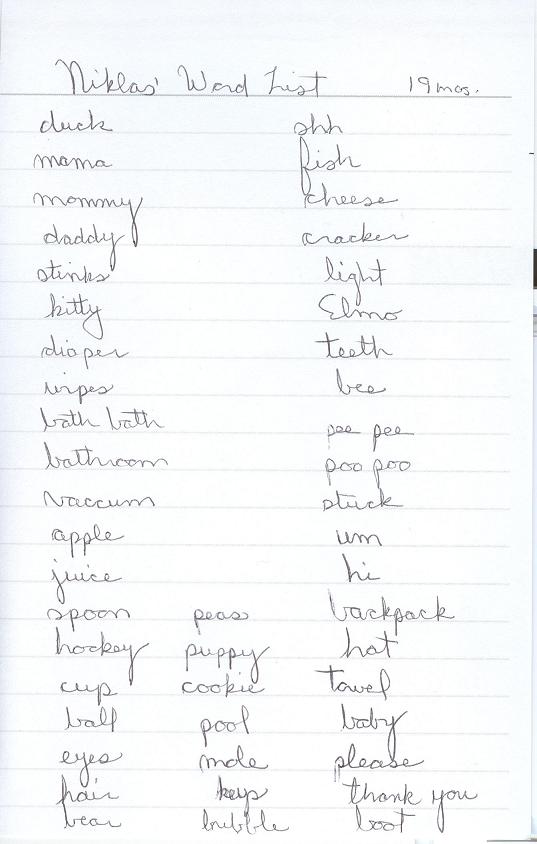 Niklas' Word List 19 mos.
duck shh
mama fish
mommy cheese
daddy cracker
stinks light
kitty Elmo
diaper teeth
wipes bee
bath bath pee pee
bathroom poo poo
vaccum stuck
apple um
juice hi
spoon peas backpack
hockey puppy hat
cup cookie towel
ball pool baby
eyes mole please
hair keys thank you
bear bubble boot